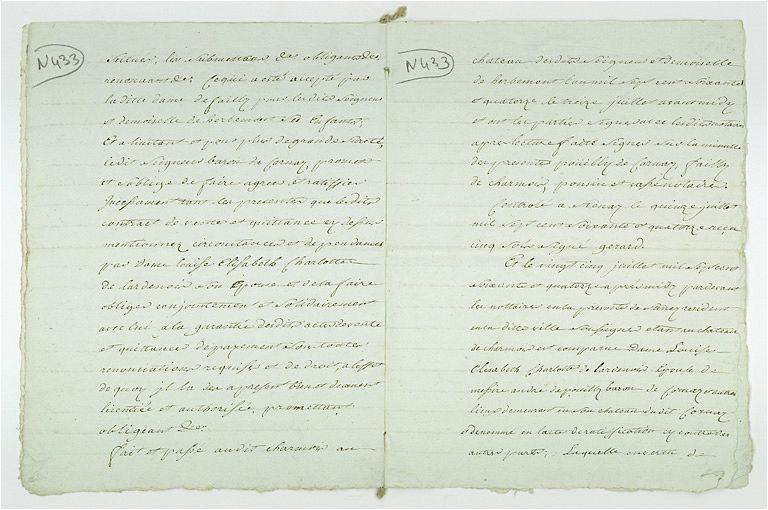 N433
situés, les submettans &c obligeans &c
renoncant &c ce qui a été accepté par
la ditte dame de failly pour lesdits Seigneur
et demoiselle de herbemont ses Enfants,
Et a l'instant et pour plus de grande sureté,
ledit Seigneur baron de Cornay, promet
et s'oblige de faire agreer et ratiffier
incessament tant les presentes que lesdits
contrat de vente et quittance cy dessus
mentionnez circonstances et dependances
par Dame louise Elisabeth Charlotte
de lardenois son Epouse et de la faire
obliger conjointement et solidairement
avec lui a la garantie desdits actes de vente
et quittance de payement sou toutes
renonciations requises et de droit, a l'effet
de quoy il la des a present bien et duement
licentiée et authorisée, promettant
obligeant &c
fait et passé audit charmois au
N433
chateau desdits Seigneur et demoiselle
de herbemont l'an mil sept cent soixante
et quatorze le treize juillet avant midy
et ont les parties signé avec lesdits notaires
apres lecture faitte signés sur la minutte
des presentes pouilly de Cornay, failly
de charmois, ponnin et
Controlé a Stenay le quinze juillet
mil sept cent soixante et quatorze reçu
cinq sols signé gerard.
Et le vingt cinq juillet mil sept cent
soixante et quatorze apres midy pardevant
les nottaires en la prevoté de resident
en la ditte ville soussignés etant au chateau
de charmois est comparue Dame Louise
Elisabeth Charlotte de lardenois Epouse de
messire andré de pouilly baron de Cornay et autres
lieux demeurant en son chateau dudit Cornay
denommé en l'acte de ratiffication cy contre des
autres parts; Laquelle en vertu de